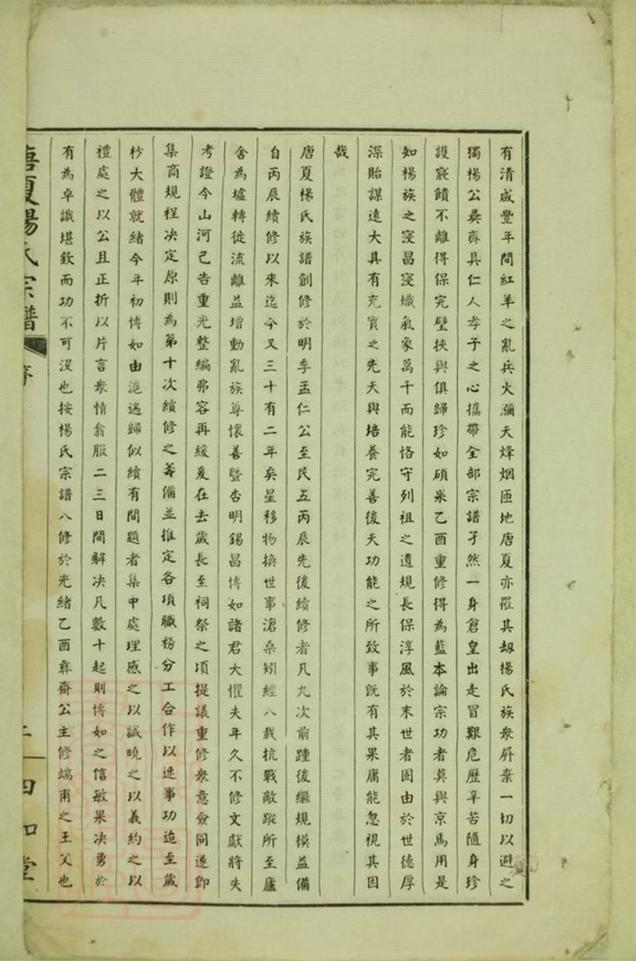 有清咸豐年間紅羊之亂兵火瀰天烽烟匝地唐夏亦罹其刼楊氏族衆屏棄一切以避之
獨楊公彛齋具仁人孝子之心攜帶全部宗譜孑然一身倉皇出走冒艱危歷辛苦隨身珍
護寢饋不離得保完璧挾與俱歸珍如碩果乙酉重修得為藍本論宗功者莫與京焉用是
知楊族之寖昌寖熾氣象萬千而能恪守列祖之遺規長保淳風於末世者固由於世德厚
深貽謀遠大具有充實之先天與培養完善後天功能之所致事旣有其果庸能忽視其因
哉
唐夏楊氏族譜創修於明季孟仁公至民五丙辰先後續修者凡九次前踵後繼規模益備
自丙辰續修以來迄今又三十有二年矣星移物換世事滄桑矧經八載抗戰敵蹤所至廬
舍為墟轉徙流離益增動亂族尊懷善暨杏明錫昌博如諸君大懼夫年久不修文獻將失
考證今山河已告重光整編弗容再緩爰在去歲長至祠祭之頃提議重修衆意僉同遂即
集商規程決定原則為第十次續修之籌備並推定各項職務分工合作以速事功迨至歲
杪大體就緒今年初博如由滬遄歸似續有問題者集中處理應之以誠曉之以義約之以
禮處之以公且正折以片言衆情翕服二三日間解決凡數十起則博如之信敏果決勇於
有為卓識堪欽而功不可沒也按楊氏宗譜八修於光緒乙酉彛齋公主修端甫之王父也
唐夏楊氏宗譜
序
四知堂